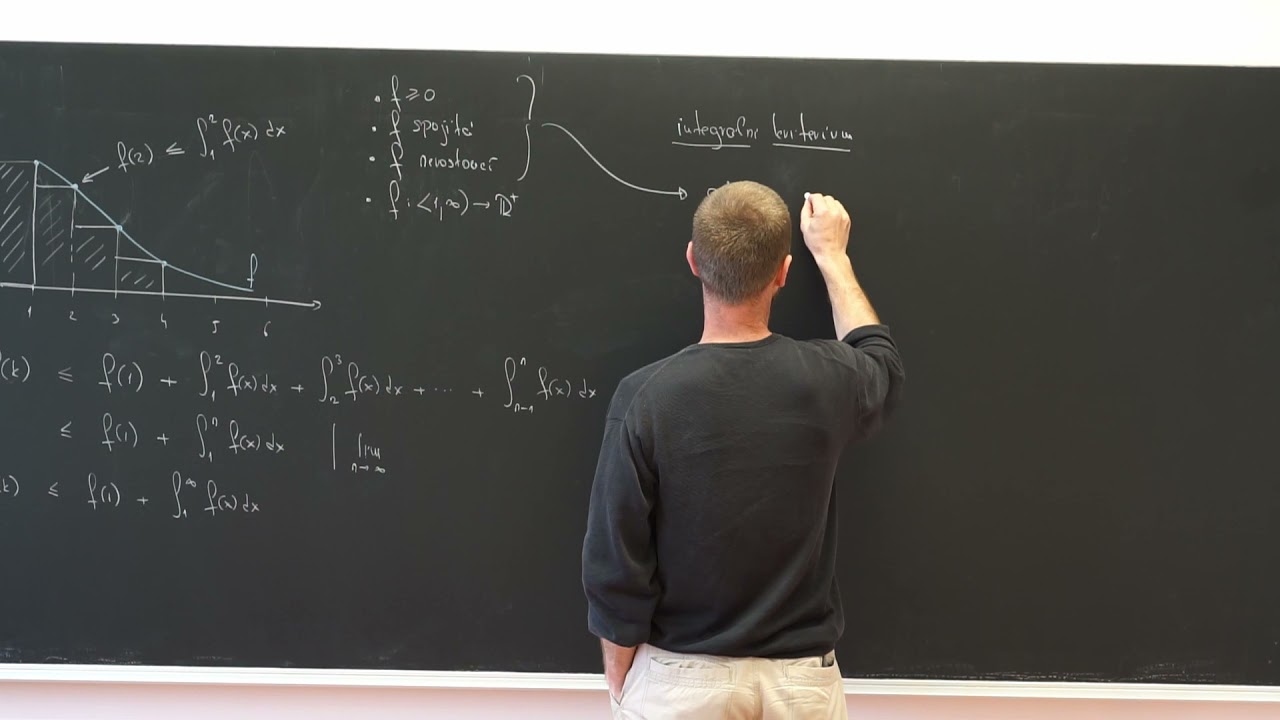 f(2) ≤ ∫₁² f(x) dx
f
1 2 3 4 5 6
• f ≥ 0
• f spojitá
• f nerostoucí
• f : <1,∞) → ℝ⁺
integrální kriterium
f(k) ≤ f(1) + ∫₁² f(x) dx + ∫₂³ f(x) dx + ... + ∫ₙ₋₁ⁿ f(x) dx
≤ f(1) + ∫₁ⁿ f(x) dx | lim n→∞
k) ≤ f(1) + ∫₁^∞ f(x) dx